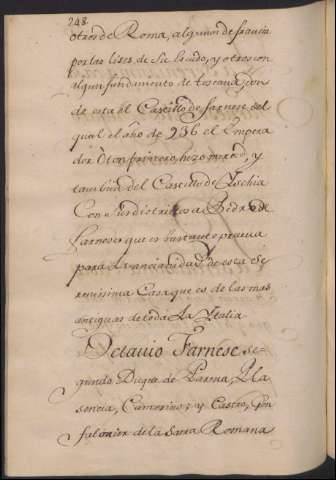 248
otros de Roma, algunos de francia
por las lises de su escudo, y otros con
algun fundamento de toscana, don
de esta el Castillo de farnese del
qual el año de 936 el Empera
dor Oton primero, hizo merced, y
tambien del Castillo de Ischia
Con sus distritos a Pedro de
farnese que es bastante prueva
para la ancianidad de esta Se
renissima Casa que es de las mas
antiguas de toda La Italia
Octauio Farnese se
gundo Duque de Parma, Pla
sencia, Camerino; y Castro, Gon
falonier de la Santa Romana